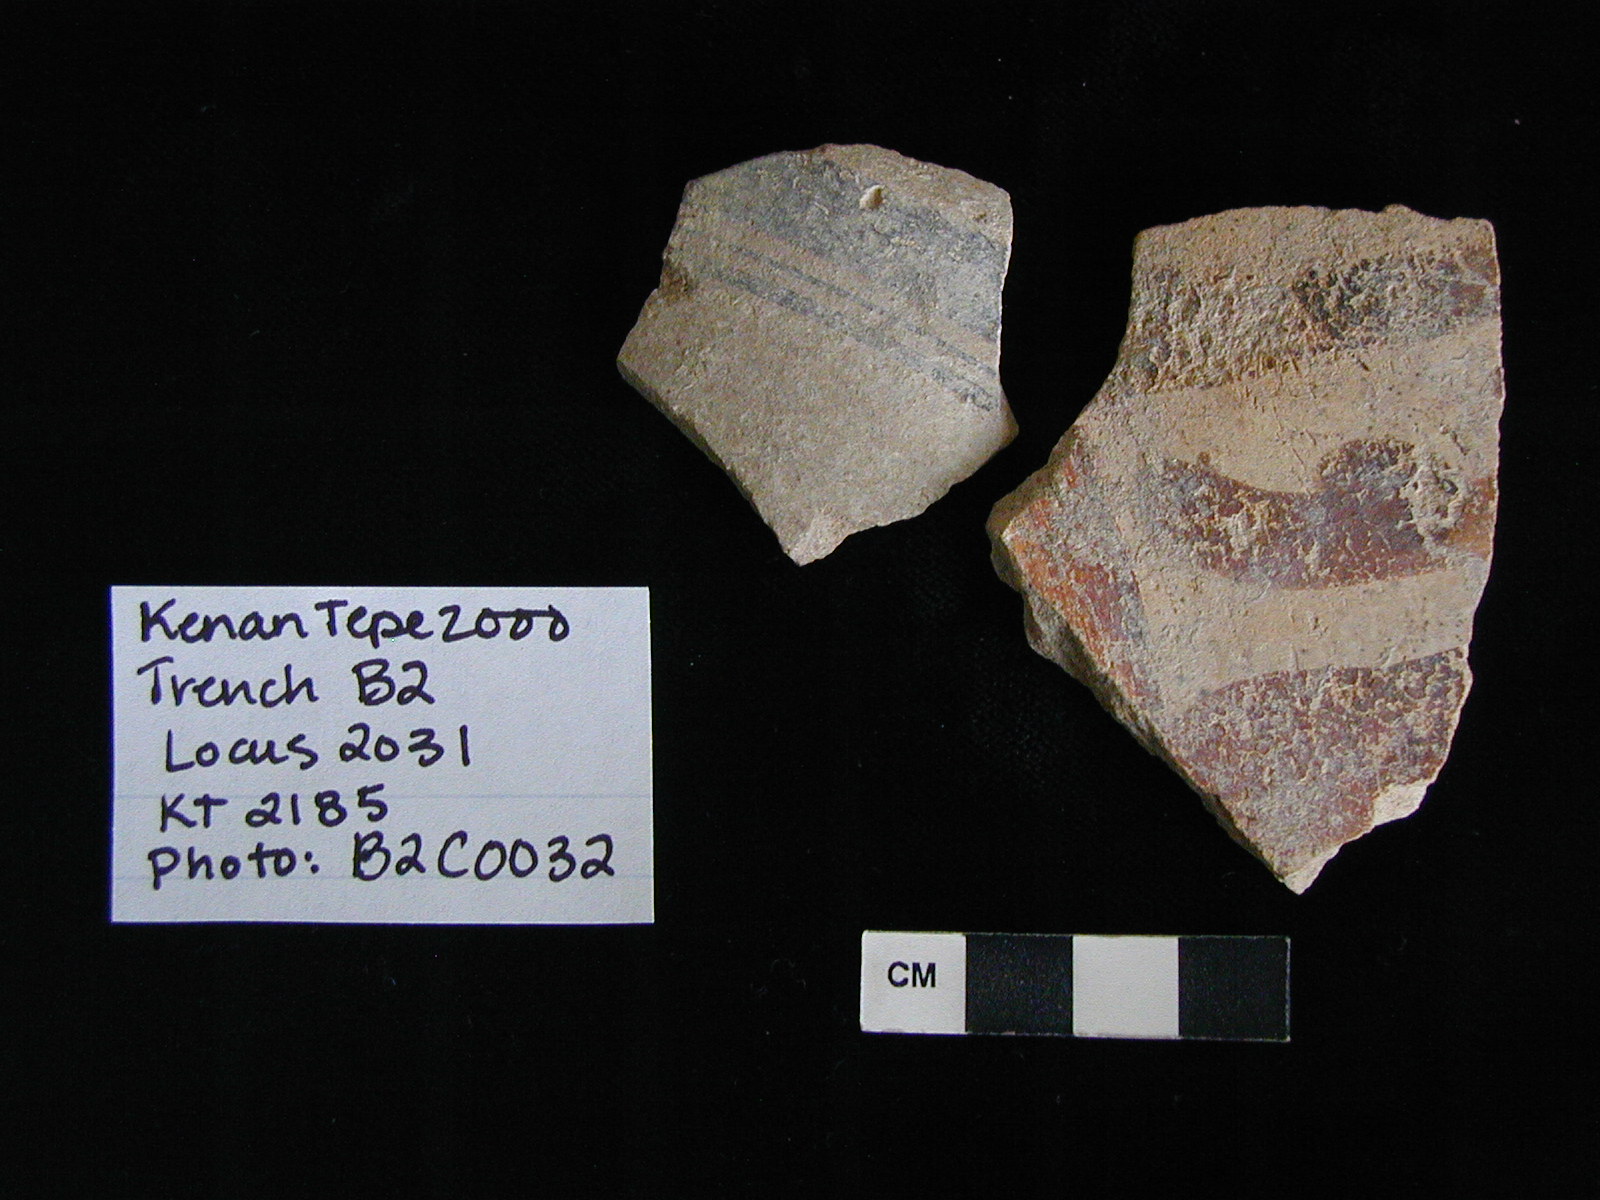 Kenan Tepe 2000
Trench B2
Locus 2031
KT 2185
Photo: B2C0032
CM